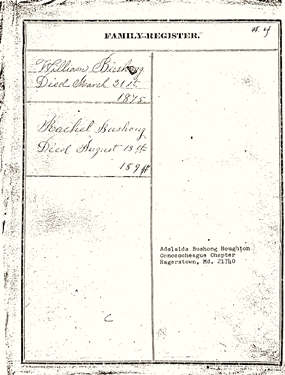 FAMILY-REGISTER.
William Bushong
Died March 21st
1875
Rachel Bushong
Died August 13th
Adelaide Bushong Houghton
Conococheague Chapter
Hagerstown, Md. 21740